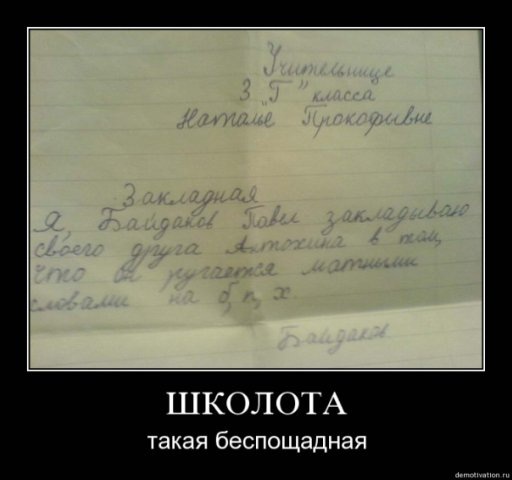 Учительнице
3 "Г" класса
Наталье Прокофивне
Закладная
Я, Байдаков Павел закладываю
своего друга Антохина в том,
что он ругается матными
словами на б, п, х.
Байдаков
ШКОЛОТА
такая беспощадная
demotivation.ru